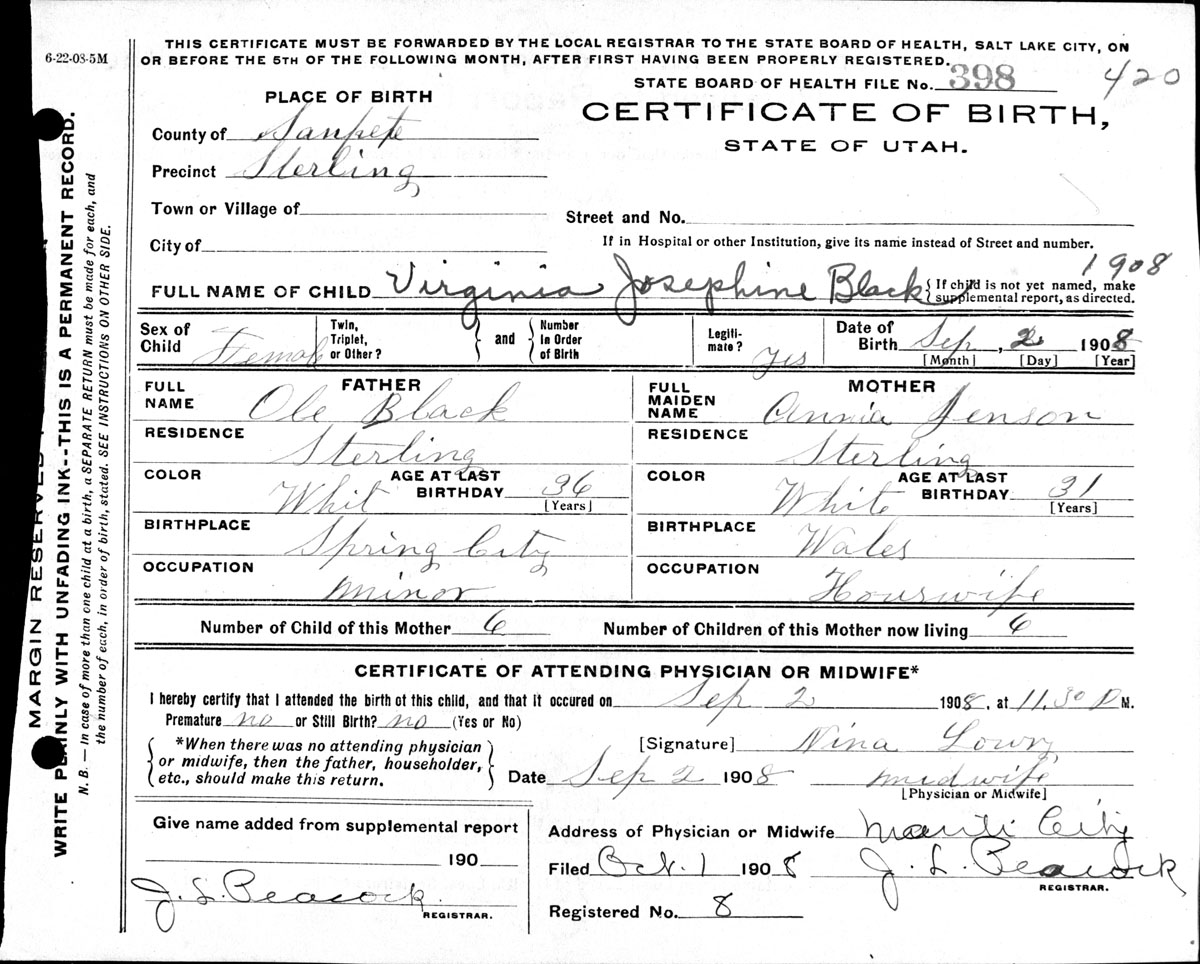 6-22-08-5M
THIS CERTIFICATE MUST BE FORWARDED BY THE LOCAL REGISTRAR TO THE STATE BOARD OF HEALTH, SALT LAKE CITY, ON
OR BEFORE THE 5TH OF THE FOLLOWING MONTH, AFTER FIRST HAVING BEEN PROPERLY REGISTERED.
STATE BOARD OF HEALTH FILE No. 398 420
PLACE OF BIRTH
CERTIFICATE OF BIRTH,
STATE OF UTAH.
County of Sanpete
Precinct Sterling
Town or Village of
Street and No.
City of
If in Hospital or other Institution, give its name instead of Street and number.
1908
FULL NAME OF CHILD Virginia Josephine Black
If child is not yet named, make
supplemental report, as directed.
Sex of Child Femal
Twin, Triplet, or Other?
and
Number In Order of Birth
Legiti-mate? yes
Date of Birth Sep, 2 1908
[Month] [Day] [Year]
FATHER
FULL NAME Ole Black
RESIDENCE Sterling
COLOR Whit AGE AT LAST BIRTHDAY 36
[Years]
BIRTHPLACE Spring City
OCCUPATION minor
MOTHER
FULL MAIDEN NAME Annia Jenson
RESIDENCE Sterling
COLOR White AGE AT LAST BIRTHDAY 31
[Years]
BIRTHPLACE Wales
OCCUPATION Hourwife
Number of Child of this Mother 6 Number of Children of this Mother now living 6
CERTIFICATE OF ATTENDING PHYSICIAN OR MIDWIFE*
I hereby certify that I attended the birth of this child, and that it occured on Sep 2 1908, at 11.30 P M.
Premature no or Still Birth? no (Yes or No)
*When there was no attending physician
or midwife, then the father, householder,
etc., should make this return.
[Signature] Nina Lowry
Date Sep 2 1908 midwife
[Physician or Midwife]
Give name added from supplemental report
190
J. L. Peacock
REGISTRAR.
Address of Physician or Midwife Manti City
Filed Oct. 1 1908 J. L. Peacock
REGISTRAR.
Registered No. 8
MARGIN RESERVED
WRITE PLAINLY WITH UNFADING INK--THIS IS A PERMANENT RECORD.
N. B. — In case of more than one child at a birth, a SEPARATE RETURN must be made for each, and
the number of each, in order of birth, stated. SEE INSTRUCTIONS ON OTHER SIDE.